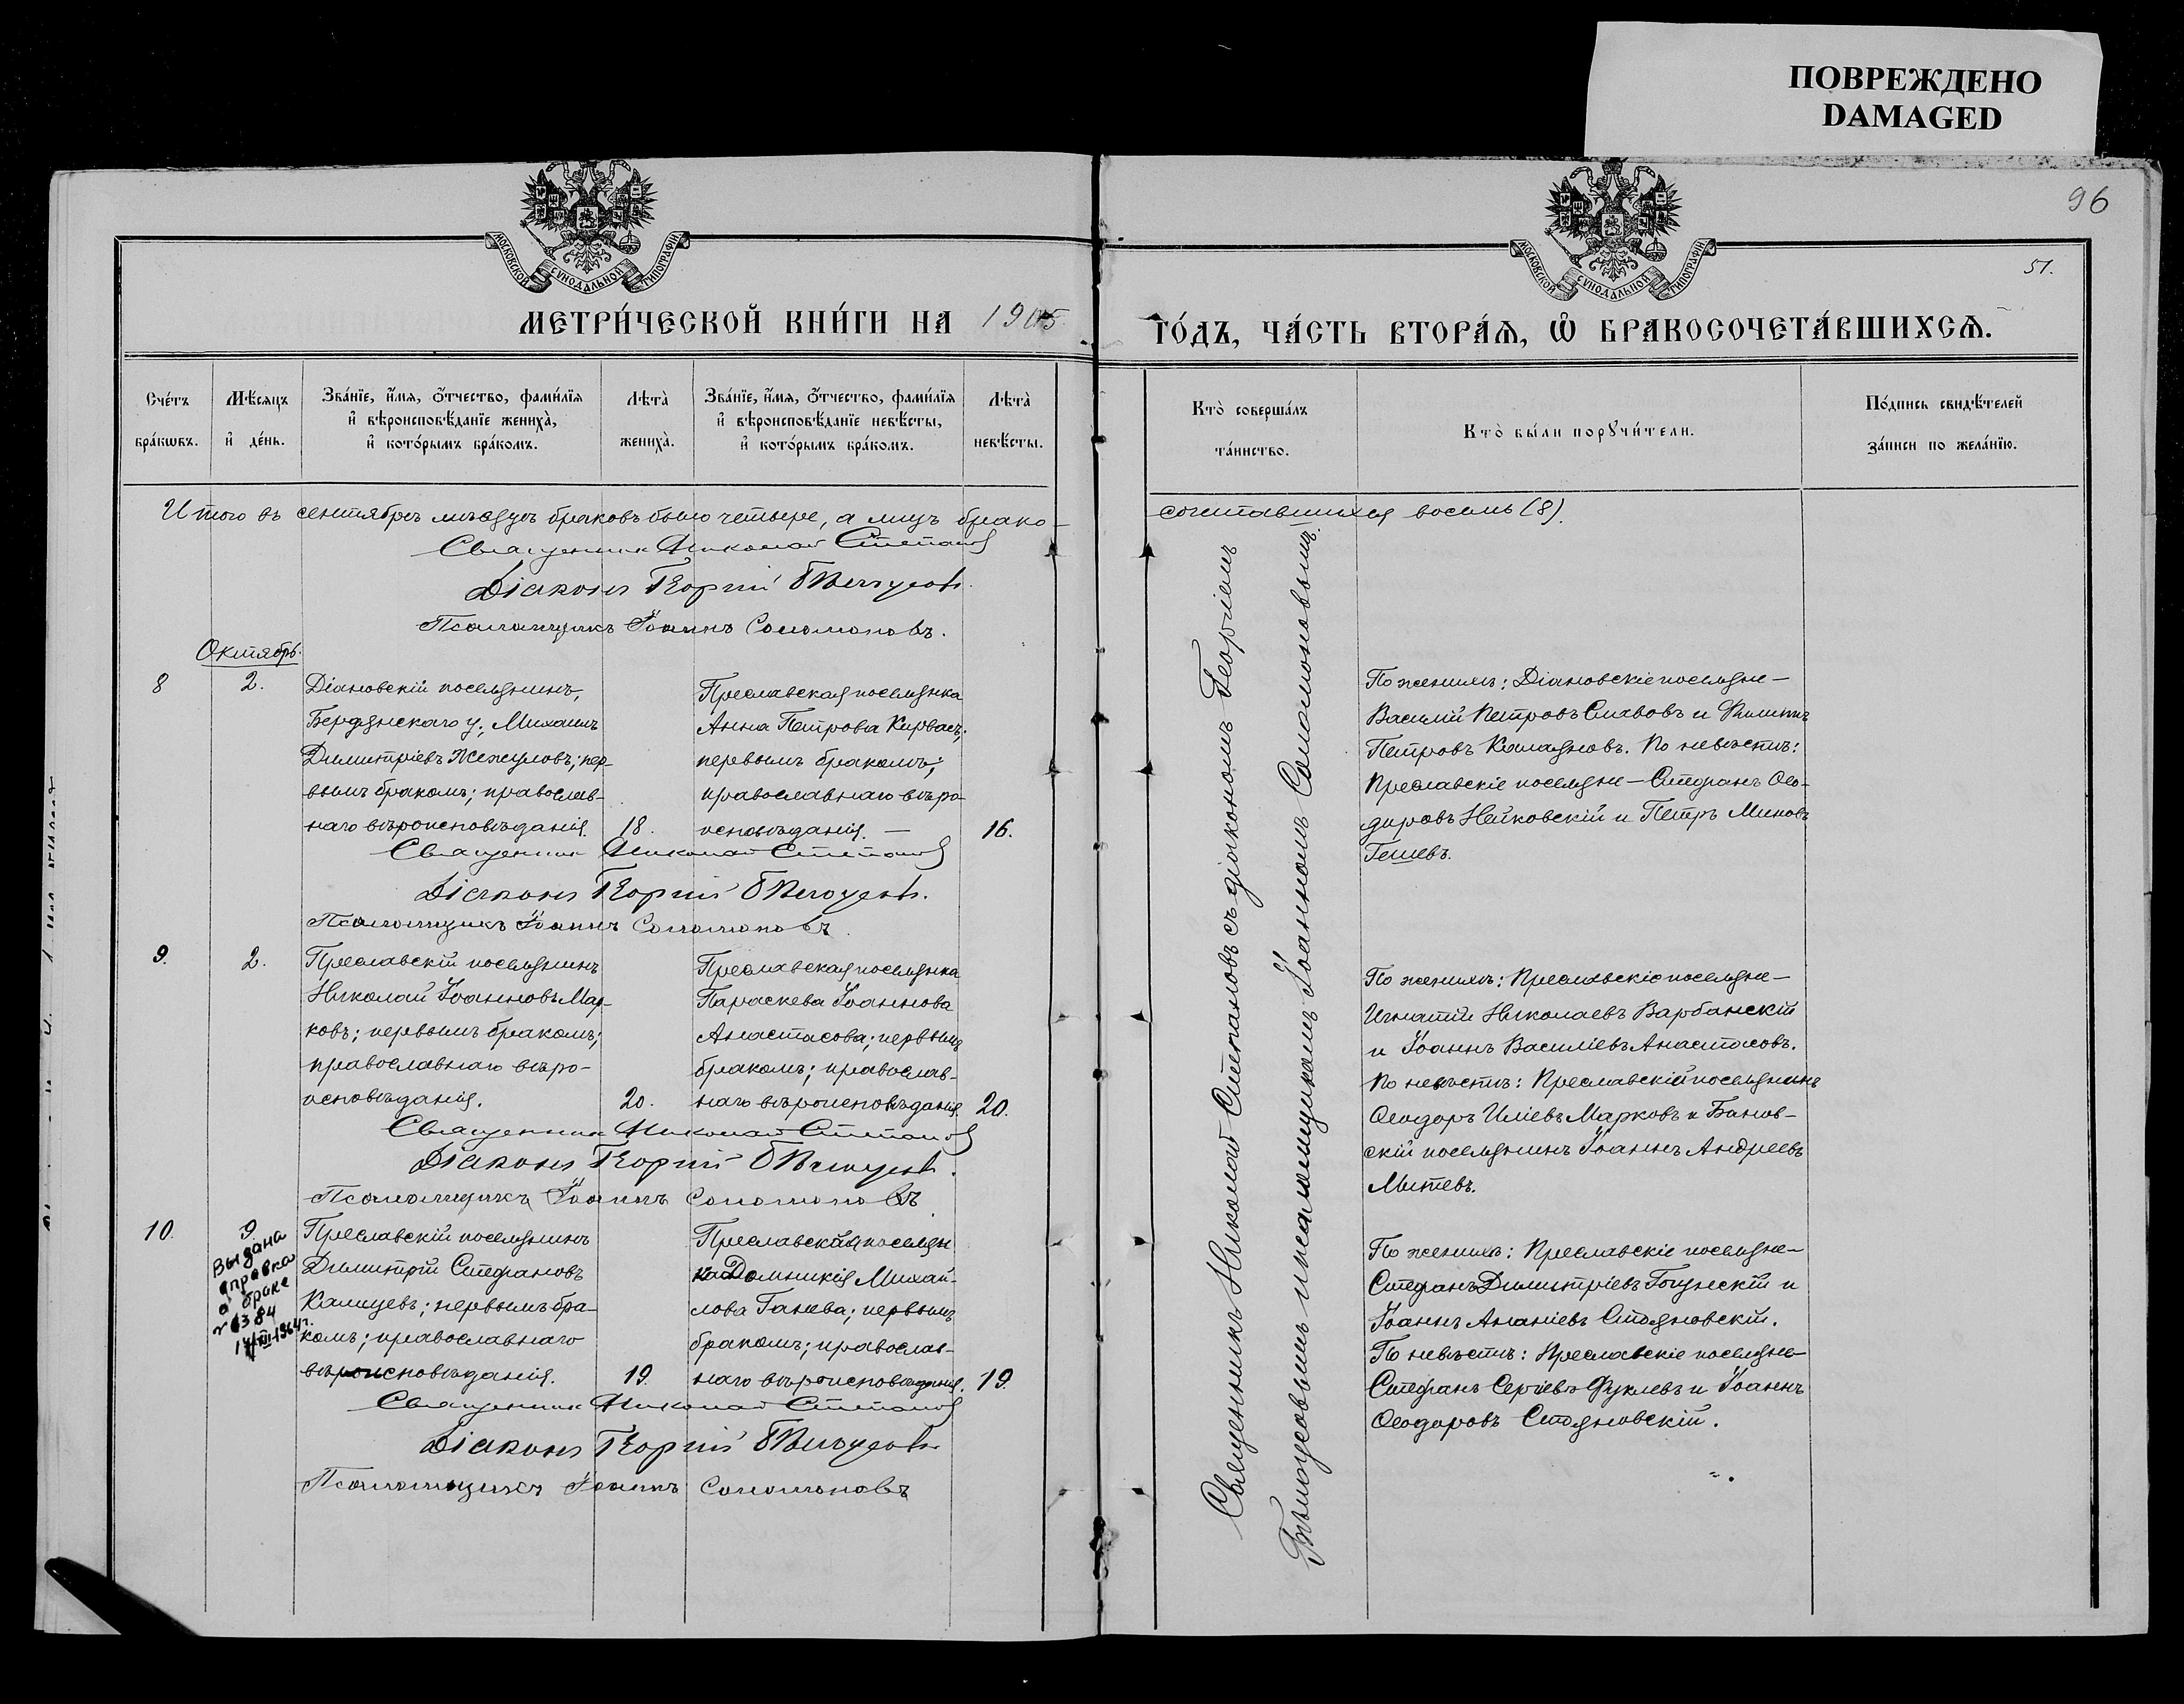 ПОВРЕЖДЕНО
DAMAGED
96
51.
МОСКОВСКОЙ СѴНОДАЛЬНОЙ ТИПОГРАФІИ
МОСКОВСКОЙ СѴНОДАЛЬНОЙ ТИПОГРАФІИ
МЕТРИ́ЧЕСКОЙ КНИ́ГИ НА 1905
ГО́ДЪ, ЧА́СТЬ ВТОРА́Ѧ, Ѽ БРАКОСОЧЕТА́ВШИХСѦ.
Сче́тъ бра́кѡвъ.
Мѣ́сяцъ и҆ де́нь.
Зва́нїе, и҆́мя, ѻ҆́тчество, фами́лїя и҆ вѣроисповѣ́данїе жениха̀, и҆ кото́рымъ бра́комъ.
Лѣта̀ жениха̀.
Зва́нїе, и҆́мя, ѻ҆́тчество, фами́лїя и҆ вѣроисповѣ́данїе невѣ́сты, и҆ кото́рымъ бра́комъ.
Лѣта̀ невѣ́сты.
Кто̀ соверша́лъ та́инство.
Кто̀ бы́ли порꙋчи́тели.
По́дпись свидѣ́телей за́писи по жела́нїю.
Итого въ сентябрѣ мѣсяцѣ браковъ было четыре, а лицъ брако-
сочетавшихся восемь (8).
Священникъ Николай Степановъ
Діаконъ Георгій Бѣлоусовъ.
Псаломщикъ Іоаннъ Соломоновъ.
Октябрь.
8
2.
Діановскій поселянинъ,
Бердянскаго у., Михаилъ
Димитріевъ Жежуловъ; пер-
вымъ бракомъ; православ-
наго вѣроисповѣданія.
18.
Преславская поселянка
Анна Петрова Кирвасъ;
первымъ бракомъ;
православнаго вѣро-
исповѣданія. —
16.
По женихѣ: Діановскіе поселяне —
Василій Петровъ Славовъ и Филиппъ
Петровъ Каладжовъ. По невѣстѣ:
Преславскіе поселяне — Стефанъ Ѳео-
доровъ Нейковскій и Петръ Миновъ
Гешевъ.
Священникъ Николай Степановъ
Діаконъ Георгій Бѣлоусовъ.
Псаломщикъ Іоаннъ Соломоновъ.
9.
2.
Преславскій поселянинъ
Николай Іоанновъ Мар-
ковъ; первымъ бракомъ;
православнаго вѣро-
исповѣданія.
20.
Преславская поселянка
Параскева Іоаннова
Анастасова; первымъ
бракомъ; православ-
наго вѣроисповѣданія.
20.
По женихѣ: Преславскіе поселяне —
Игнатій Николаевъ Варбанскій
и Іоаннъ Василіевъ Анастасовъ.
По невѣстѣ: Преславскій поселянинъ
Ѳеодоръ Иліевъ Марковъ и Банов-
скій поселянинъ Іоаннъ Андреевъ
Митевъ.
Священникъ Николай Степановъ
Діаконъ Георгій Бѣлоусовъ.
Псаломщикъ Іоаннъ Соломоновъ
10.
9.
Выдана
справка
о браке
6384
Преславскій поселянинъ
Димитрій Стефановъ
Калщевъ; первымъ бра-
комъ; православнаго
вѣроисповѣданія.
19.
Преславская поселян
ка Домникія Михай-
лова Ганева; первымъ
бракомъ; православ-
наго вѣроисповѣданія.
19.
По женихѣ: Преславскіе поселяне —
Стефанъ Димитріевъ Гоцунскій и
Іоаннъ Ананіевъ Стояновскій.
По невѣстѣ: Преславскіе поселяне
Стефанъ Сергіевъ Фуклевъ и Іоаннъ
Ѳеодоровъ Стояновскій.
Священникъ Николай Степановъ
Діаконъ Георгій Бѣлоусовъ
Псаломщикъ Іоаннъ Соломоновъ
Священникъ Николай Степановъ съ діакономъ Георгіемъ
Бѣлоусовымъ и псаломщикомъ Іоанномъ Соломоновымъ.